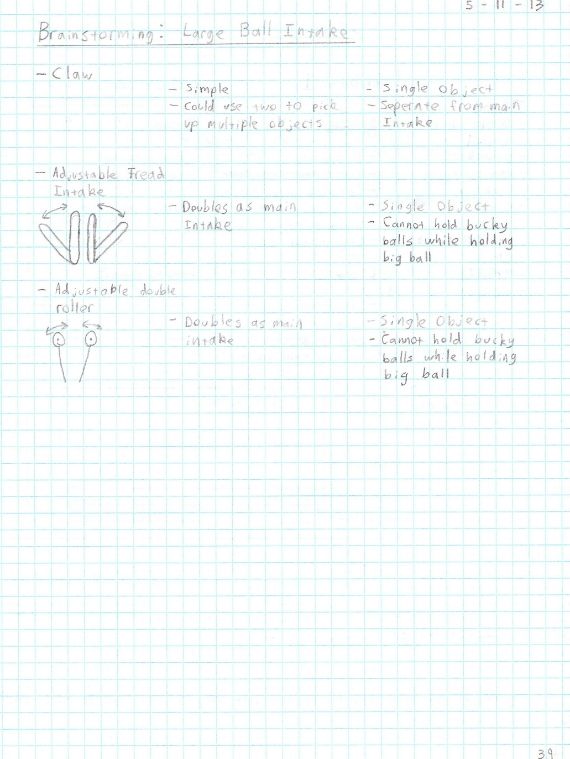 5 - 11 - 13
Brainstorming: Large Ball Intake
- Claw
- Simple
- Could use two to pick
up multiple objects
- Single Object
- Seperate from main
Intake
- Adjustable Tread
Intake
- Doubles as main
Intake
- Single Object
- Cannot hold bucky
balls while holding
big ball
- Adjustable double
roller
- Doubles as main
intake
- Single Object
- Cannot hold bucky
balls while holding
big ball
39